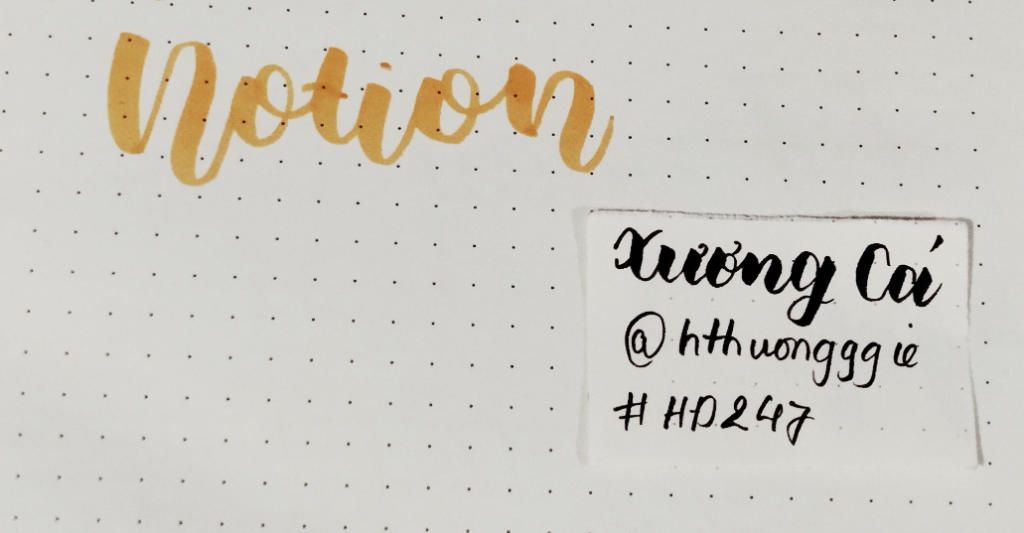 Notion
Xương Cá
@hthuongggie
#HD247